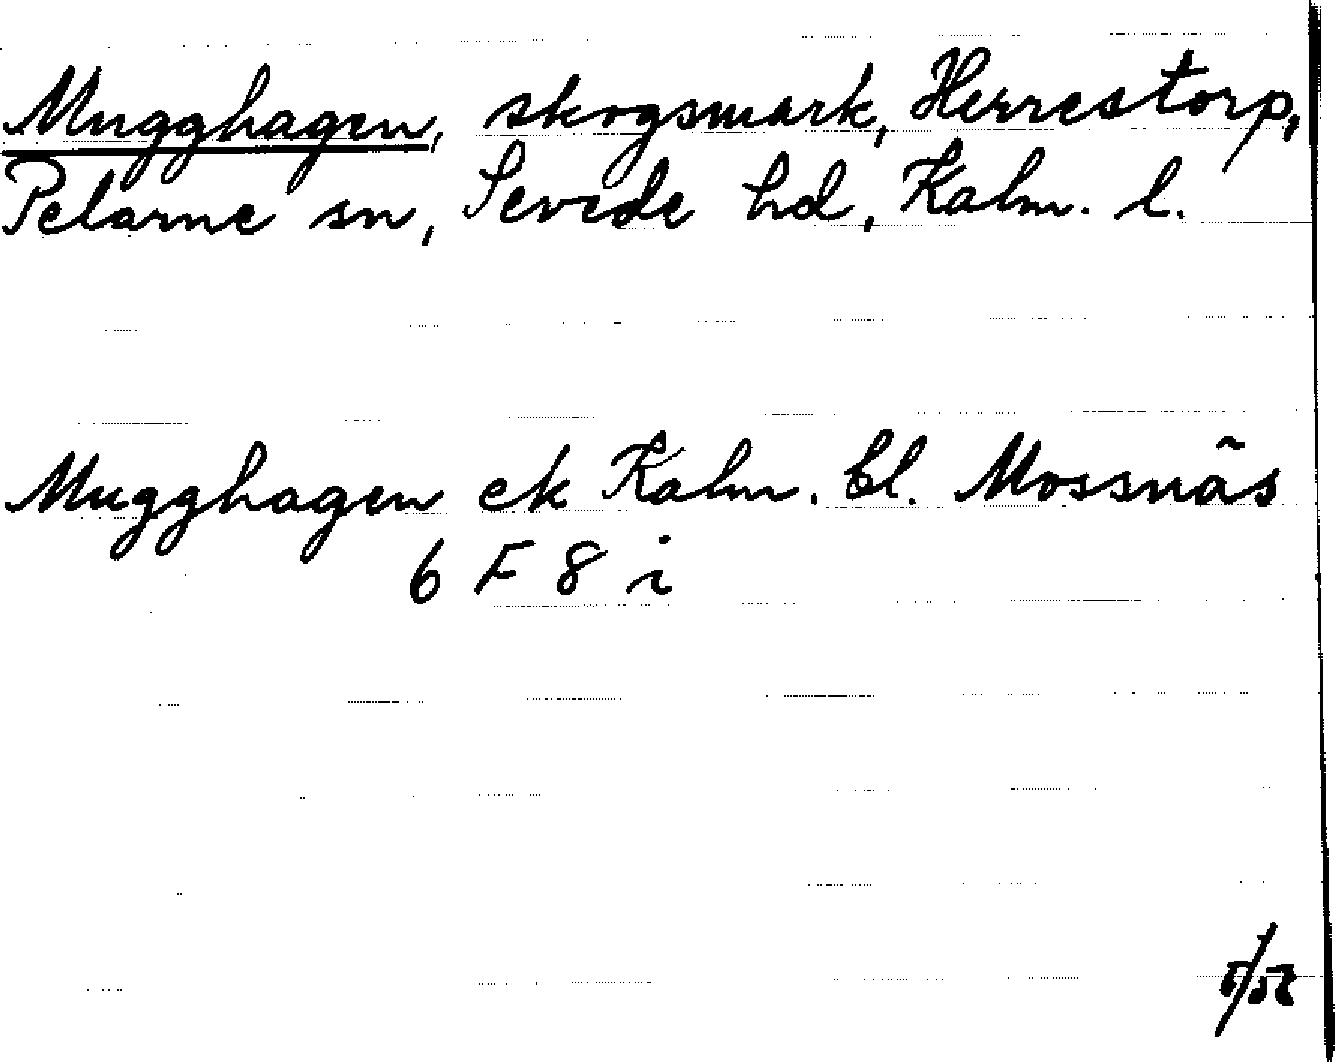 Mugghagen, skogsmark, Herrestorp,
Pelarne sn, Sevede hd, Kalm. l.
Mugghagen ek Kalm. bl. Mossnäs
6 F 8 i